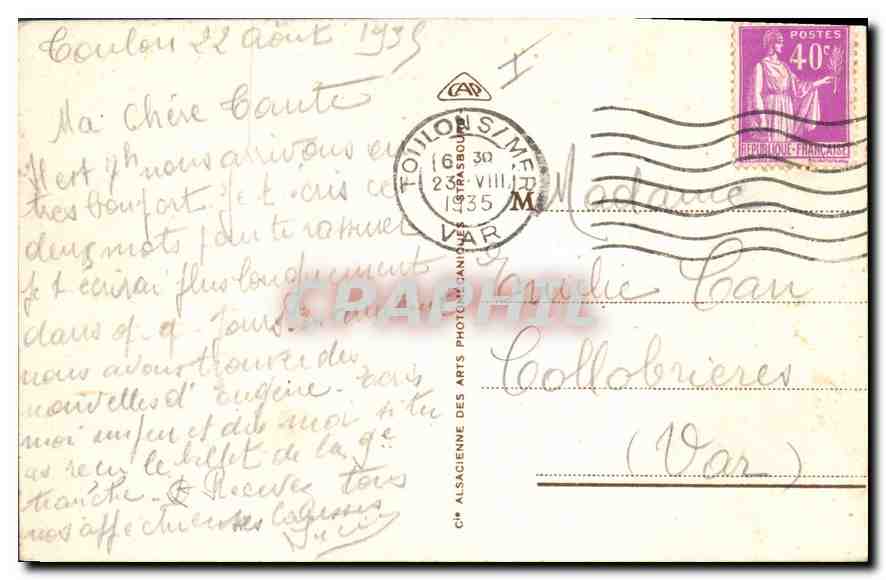 Toulon 22 Août 1935
Ma Chère Tante
Il est 7h nous arrivons en
tres bon port. Je t'écris ces
deux mots pour te rassurer
Je t écrirai plus longuement
dans q. q. jours.
nous avons trouver des
nouvelles d' Eugène. Ecris
moi un peu et dis moi si tu
as recu le billet de la
tranche. Recevez tous
nos affectueuses caresses
I
CAP
TOULON S/MER
16 30
23 VIII
1935
VAR
POSTES
40c
REPUBLIQUE FRANÇAISE
Cie ALSACIENNE DES ARTS PHOTOMÉCANIQUES STRASBOURG
M
Madame
Emilie
Collobrieres
(Var)
CPAPHIL